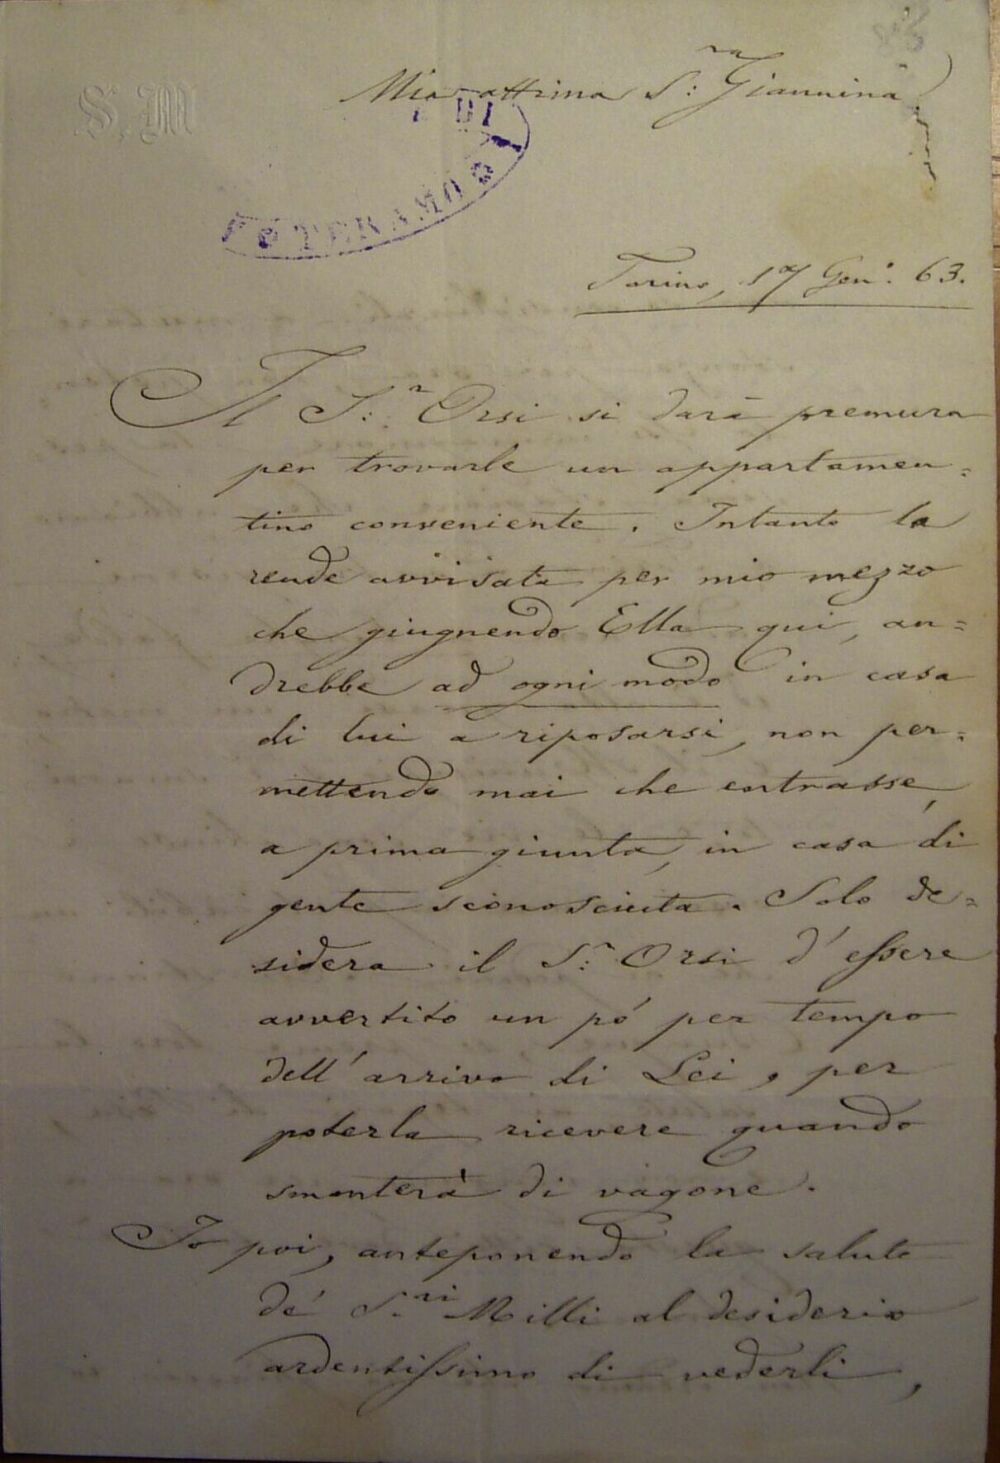 S. M
Mia ottima S.ra Giannina
DI
TERAMO
Torino, 17 Gen.o 63.
Il S.r Orsi si darà premura
per trovarle un appartamen=
tino conveniente. Intanto la
rende avvisata per mio mezzo
che giugnendo Ella qui, an=
drebbe ad ogni modo in casa
di lui a riposarsi, non per=
mettendo mai che entrasse,
a prima giunta, in casa di
gente sconosciuta. Solo de=
sidera il S.r Orsi d'essere
avvertito un pó per tempo
dell'arrivo di Lei, per
poterla ricevere quando
smonterà di vagone.
Io poi, anteponendo la salute
de' S.ri Milli al desiderio
ardentissimo di vederli,